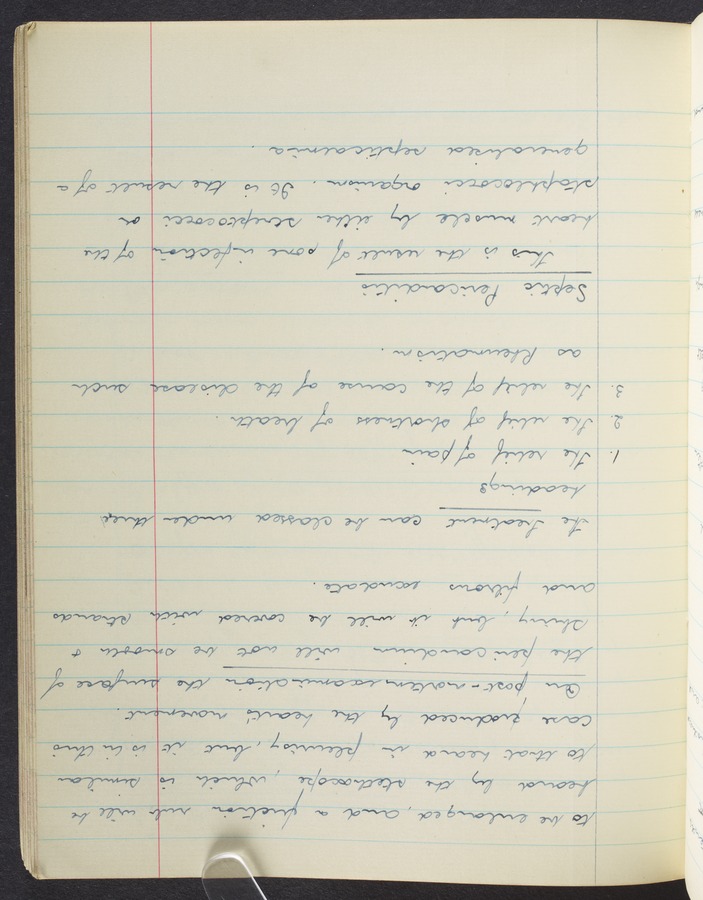 to be enlarged, and a friction rub will be
heard by the stethoscope, which is similar
to that heard in pleurisy, but it is in this
case produced by the heart's movement.
On post-mortem examination the surface of
the pericardium will not be smooth &
shiny, but it will be covered with strands
and fibrous exudate.
The treatment can be classed under three
headings
1. The relief of pain
2. The relief of shortness of breath.
3. The relief of the cause of the disease such
as Rheumatism.
Septic Pericarditis
This is the result of some infection of the
heart muscle by either streptococci or
staphlococci organism. It is the result of a
generalised septicaemia.